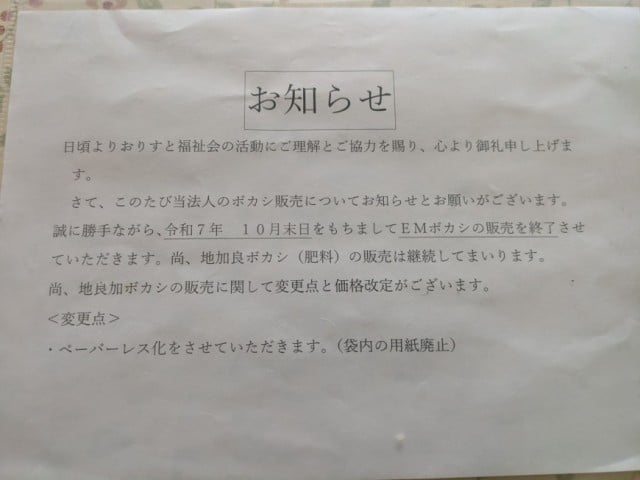 お知らせ
日頃よりおりすと福祉会の活動にご理解とご協力を賜り、心より御礼申し上げま
す。
さて、このたび当法人のボカシ販売についてお知らせとお願いがございます。
誠に勝手ながら、令和７年　１０月末日をもちましてＥＭボカシの販売を終了させ
ていただきます。尚、地加良ボカシ（肥料）の販売は継続してまいります。
尚、地良加ボカシの販売に関して変更点と価格改定がございます。
＜変更点＞
・ペーパーレス化をさせていただきます。（袋内の用紙廃止）